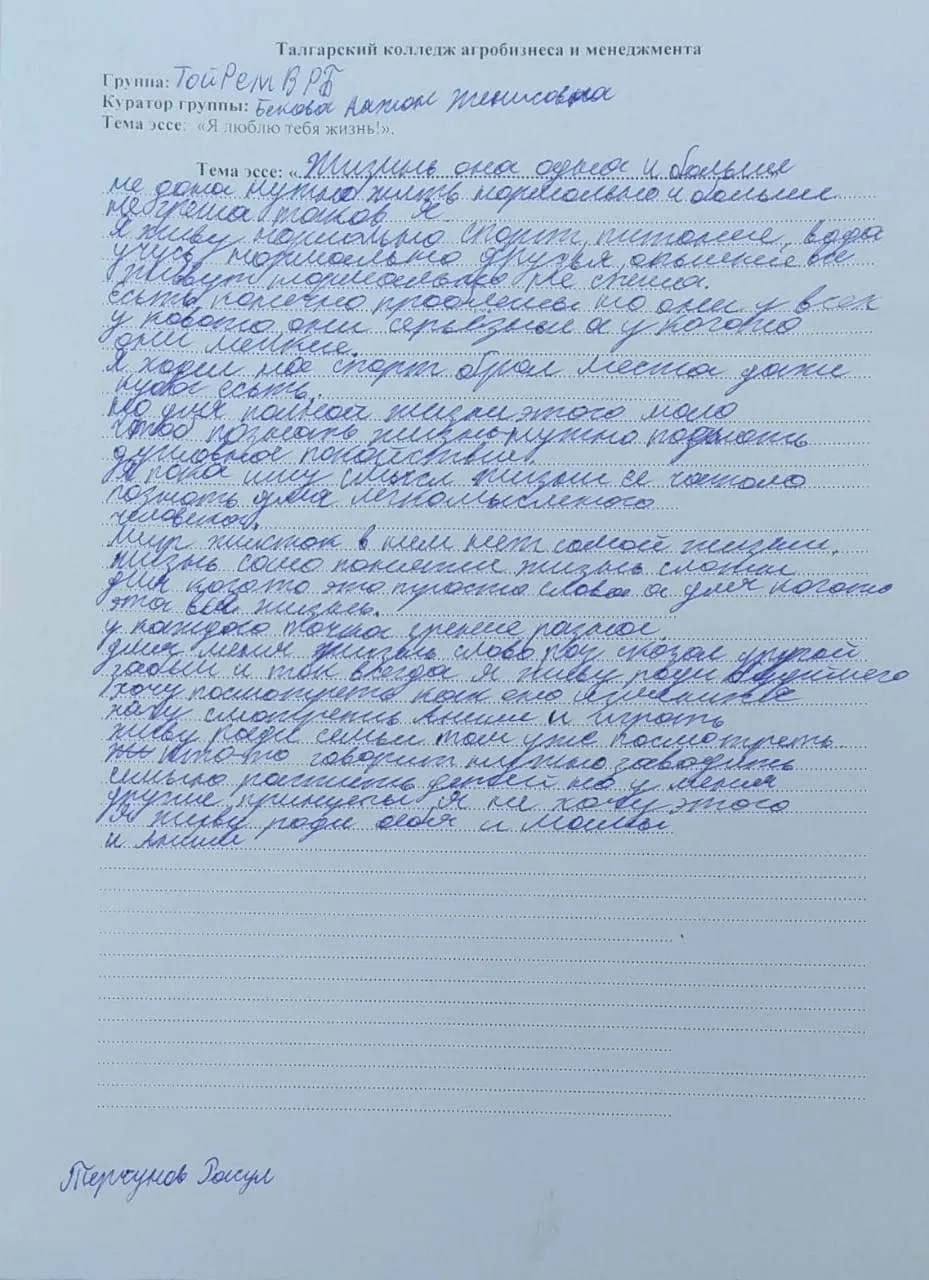 Талгарский колледж агробизнеса и менеджмента
Группа: ТОйРемВРБ
Куратор группы: Бекова Женисовна
Тема эссе: «Я люблю тебя жизнь!».
Тема эссе: « Жизнь она одна и больше
не дана нужно жить нормально и больши
не таков Я
Я живу нормально спорт, питание, вода
учусь нормально друзья, все
живут нормально не
есть конечно проблемы но они у всех
у ковото они серьёзные а у кагото
они мелкие.
Я хошу на спорт места даже
есть.
но для полной жизни этого мало
чтоб познать жизнь нужно
духовное
Я пока ищу смысл жизни ее
познать для легкомысленого
человека.
Мир жисток в нем нет самой жизни.
жизнь само понятии жизнь
для когото это просто слова а для когото
это вся жизнь.
у каждого точка зрение разное.
для меня жизнь слово раз сказал другой
забыл и так всегда Я живу ради
хочу посмотреть как она изменится
хочу смотреть Аниме и играть
живу ради семьи там уже посмотреть
кто-то говорит нужно заводить
семью растить детей но у меня
другие принцепы Я не хочу этого
Я живу ради себя и мамы
и Аниме
Расул